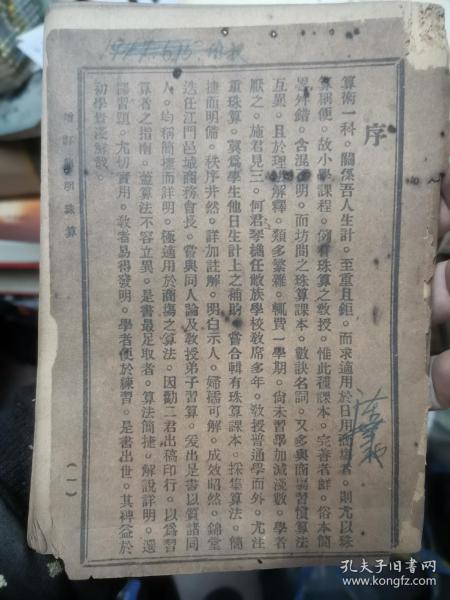 序
算術一科。關係吾人生計。至重且鉅。而求適用於日用商塲者。則尤以珠
算稱便。故小學課程。例有珠算之教授。惟此種課本。完善者鮮。俗本簡
錯。含混不明。而坊間之珠算課本。數訣名詞。又多與商塲習慣算法
互異。且於理解釋。類多繁雜。輒費一學期。尙未習學加減淺數。學者
厭之。施君見三。何君琴樵任敝族學校敎席多年。敎授普通學而外。尤注
重珠算。冀爲學生他日生計上之補助。嘗合輯有珠算課本。採集算法。簡
捷而明備。秩序井然。詳加註解。明白示人。婦孺可解。成效昭然。錦堂
迭任江門邑城商務會長。嘗與同人論及敎授弟子習算。爰出是書以質諸同
人。均稱簡捷而詳明。極適用於商塲之算法。因勸二君出稿印行。以爲習
算者之指南。蓋算法不容立異。是書最足取者。算法簡捷。解說詳明。選
擇習題。尤切實用。敎者易得發明。學者便於練習。是書出世。其裨益於
初學豈淺尠哉。
(一)
孔夫子旧书网
book.kongfz.com